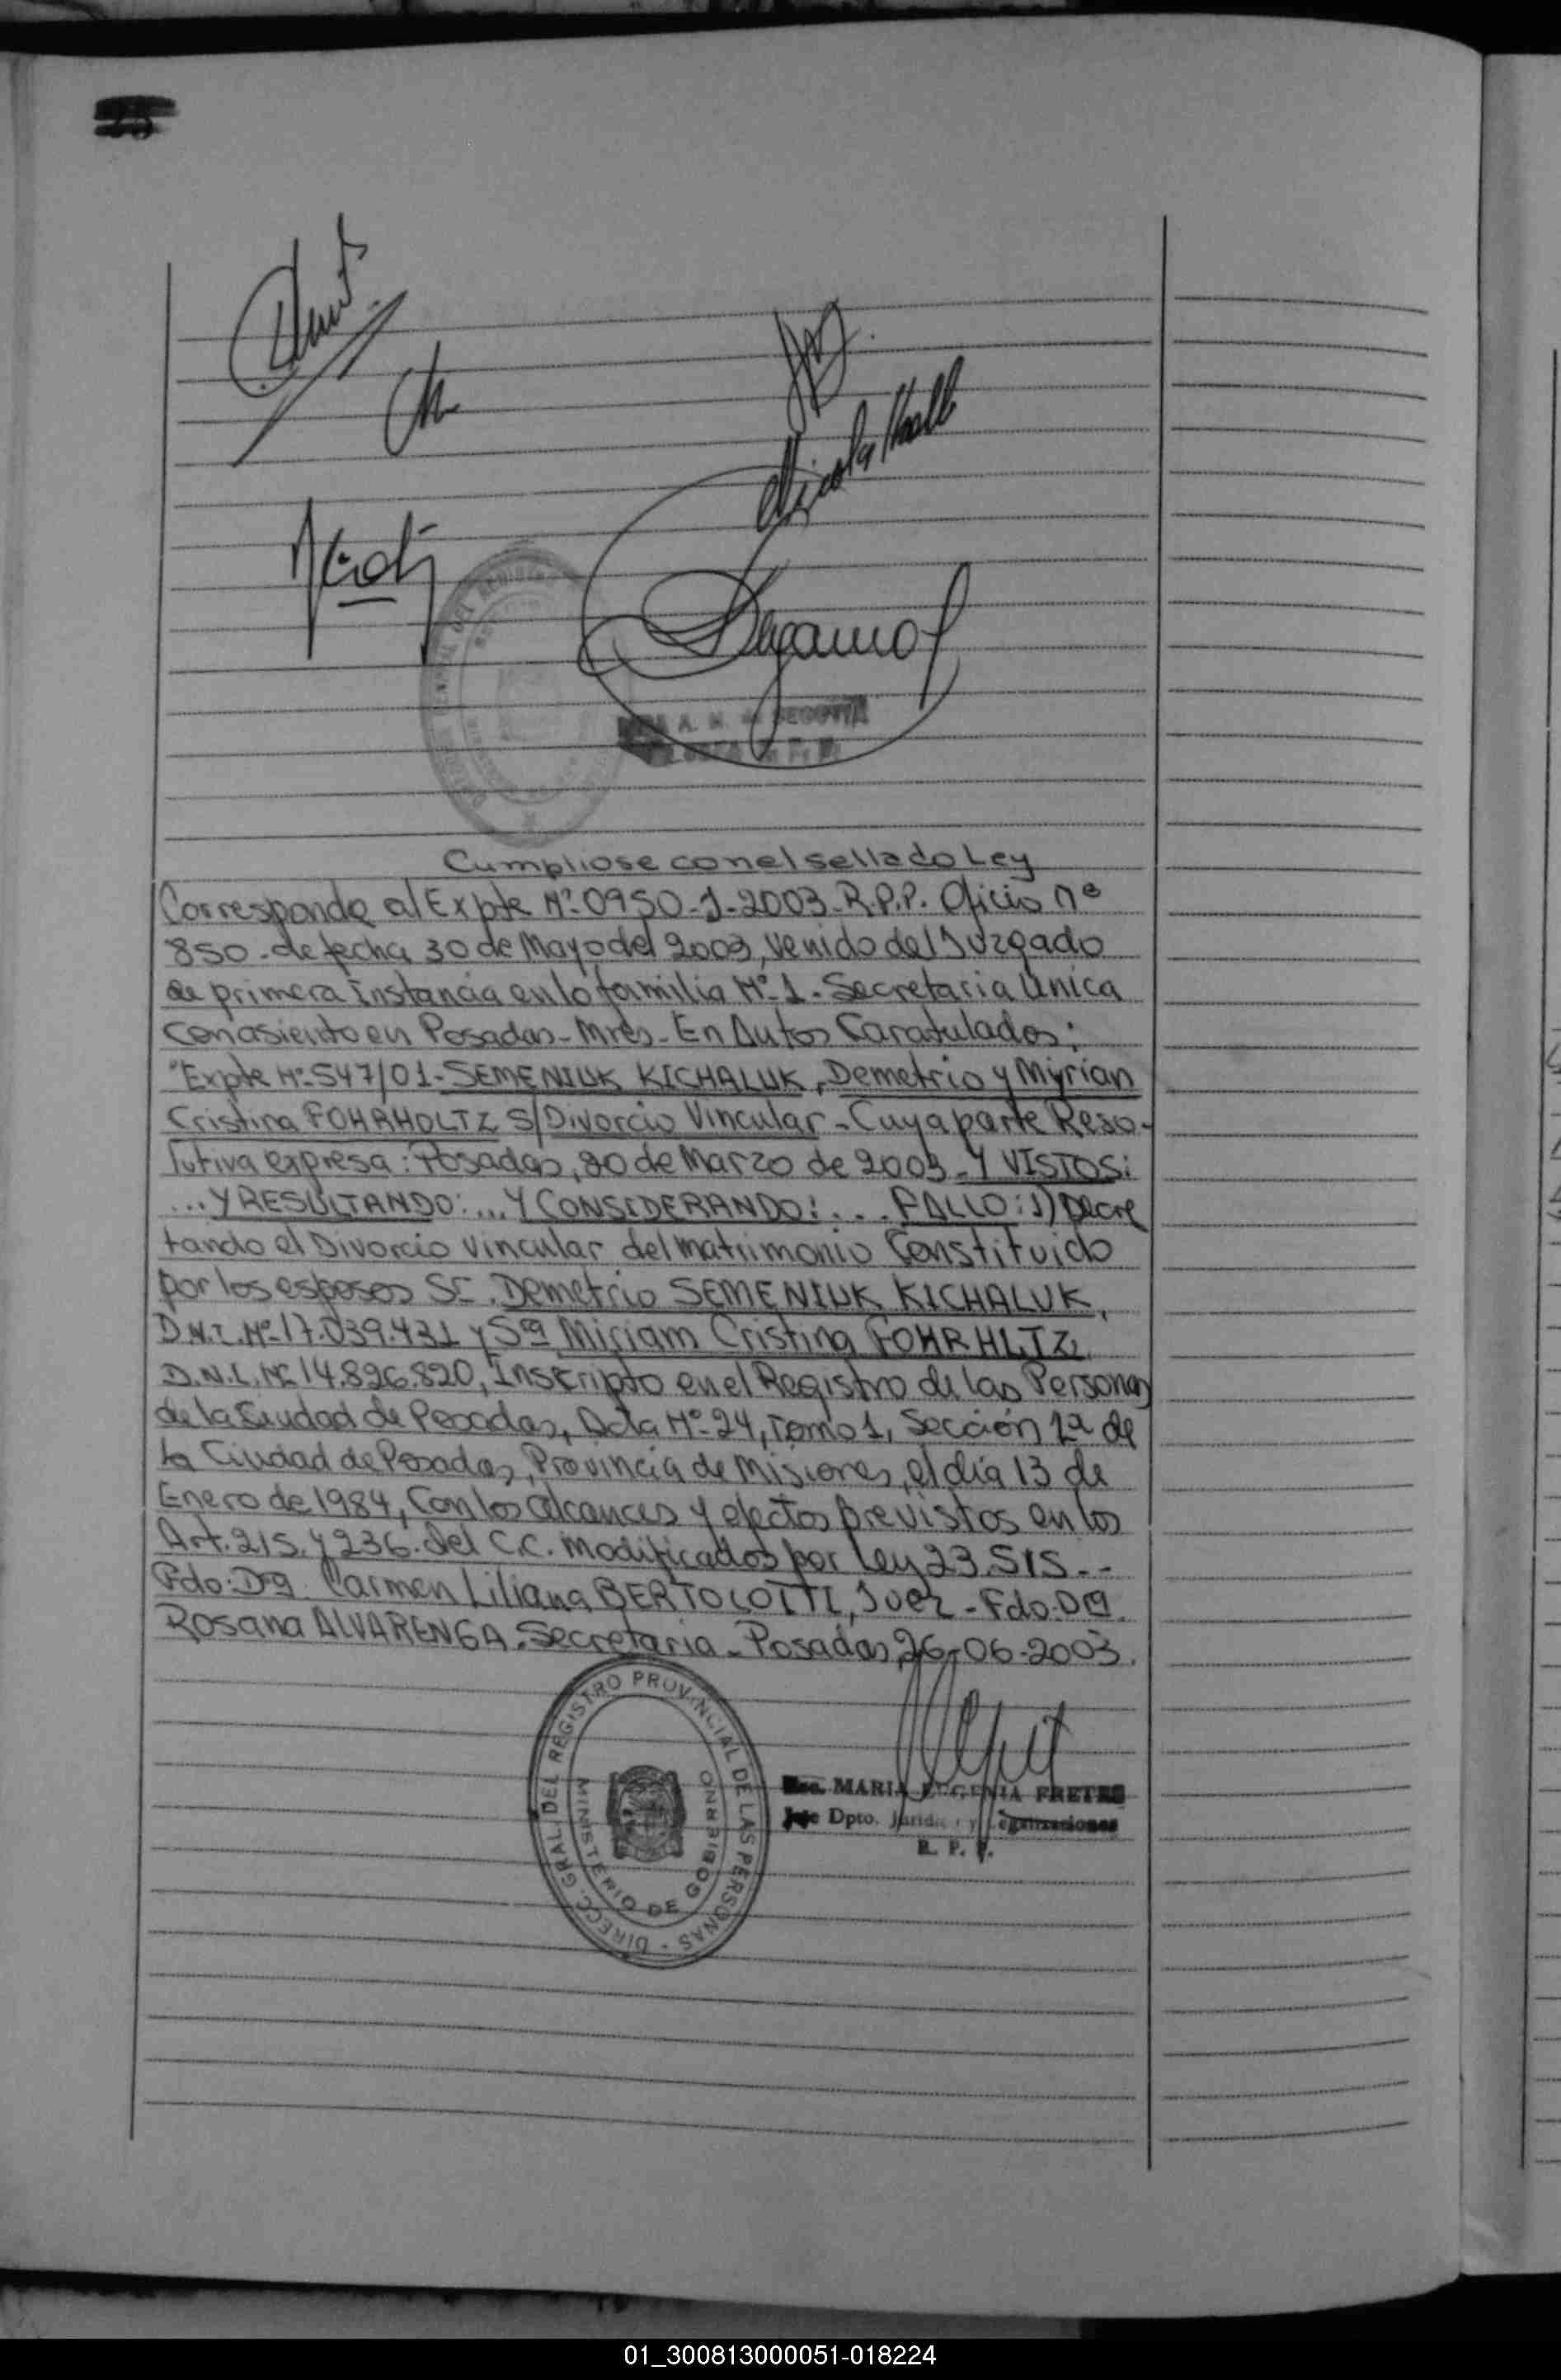 Nicola Krall
A. M. de SEGOVIA
Cumpliose con el sellado Ley
Corresponde al Expte Nº-0950-J-2003-R.P.P. Oficio nº
850-de fecha 30 de Mayo del 2003, Venido del Juzgado
de primera Instancia en lo familia Nº-1- Secretaria Unica
con asiento en Posadas-Mnes- En Autos Caratulados:
"Expte Nº-547/01-SEMENIUK KICHALUK, Demetrio y Myrian
Cristina FOHRHOLTZ S/Divorcio Vincular - Cuya parte Reso-
lutiva expresa: Posadas, 20 de Marzo de 2003- Y VISTOS:
... Y RESULTANDO: ... Y CONSIDERANDO: ... FALLO: 1) Decre
tando el Divorcio Vincular del matrimonio Constituido
por los esposos Sr. Demetrio SEMENIUK KICHALUK,
D.N.I. Nº-17.039.431 y Sra Miriam Cristina FOHRHLTZ,
D.N.I. Nº 14.826.820, Inscripto en el Registro de las Personas
de la Ciudad de Posadas, Acta Nº-24, Tomo 1, Sección 1ª de
la Ciudad de Posadas, Provincia de Misiones, el día 13 de
Enero de 1984, Con los alcances y efectos previstos en los
Art. 215. y 236. del C.C. modificados por Ley 23.515.--
Fdo: Dra. Carmen Liliana BERTOLOTTI, Juez - Fdo: Dra.
Rosana ALVARENGA. Secretaria - Posadas, 26-06-2003.
DIRECC. GRAL. DEL REGISTRO PROVINCIAL DE LAS PERSONAS -
MINISTERIO DE GOBIERNO
MARIA EUGENIA FRETES
Jefe Dpto. Jurídico y Legalizaciones
R. P. P.
01_300813000051-018224